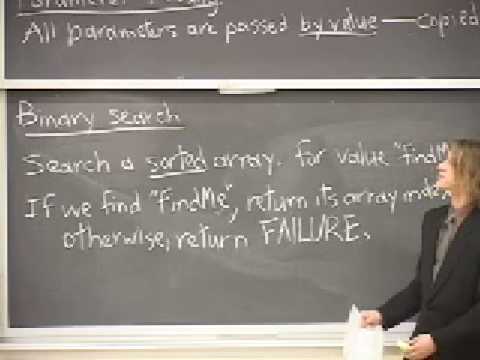 Parameter Passing
All parameters are passed by value — copied
Binary search
Search a sorted array for value "findMe
If we find "findMe", return its array index
otherwise, return FAILURE.